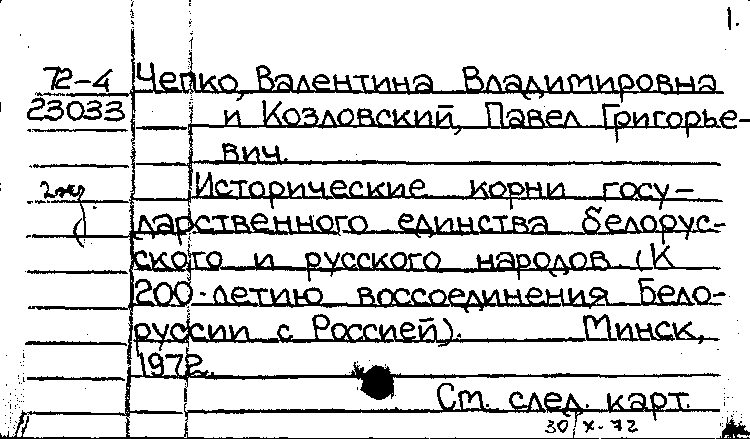 1.
72-4 Чепко, Валентина Владимировна
23033 и Козловский, Павел Григорье-
вич.
2 экз Исторические корни госу-
дарственного единства белорус-
ского и русского народов. (К
200-летию воссоединения Бело-
руссии с Россией). Минск,
1972.
См. след. карт.
30/X-72